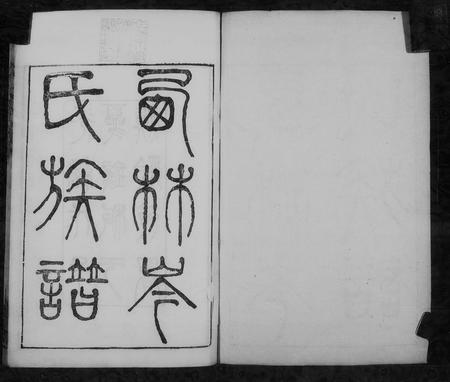 西林岑
氏族譜